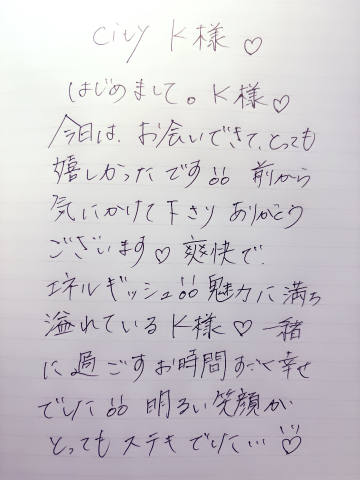 City K様♡
はじめまして。K様♡
今日は、お会いできて、とっても
嬉しかったです!! 前から
気にかけて下さり ありがとう
ございます♡ 爽快で
エネルギッシュ!! 魅力に満ち
溢れているK様♡ 一緒
に過ごすお時間すごく幸せ
でした!! 明るい笑顔が
とってもステキでした…♡